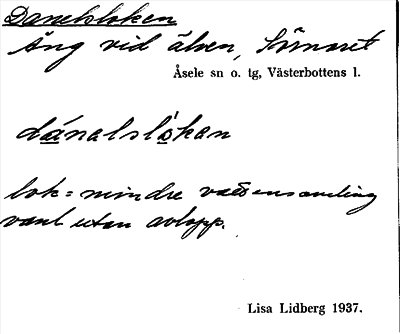 Danelsloken
Äng vid älven, Sörnoret
Åsele sn o. tg, Västerbottens l.
dánalslòkan
lok = mindre vattensamling
vanl utan avlopp.
Lisa Lidberg 1937.